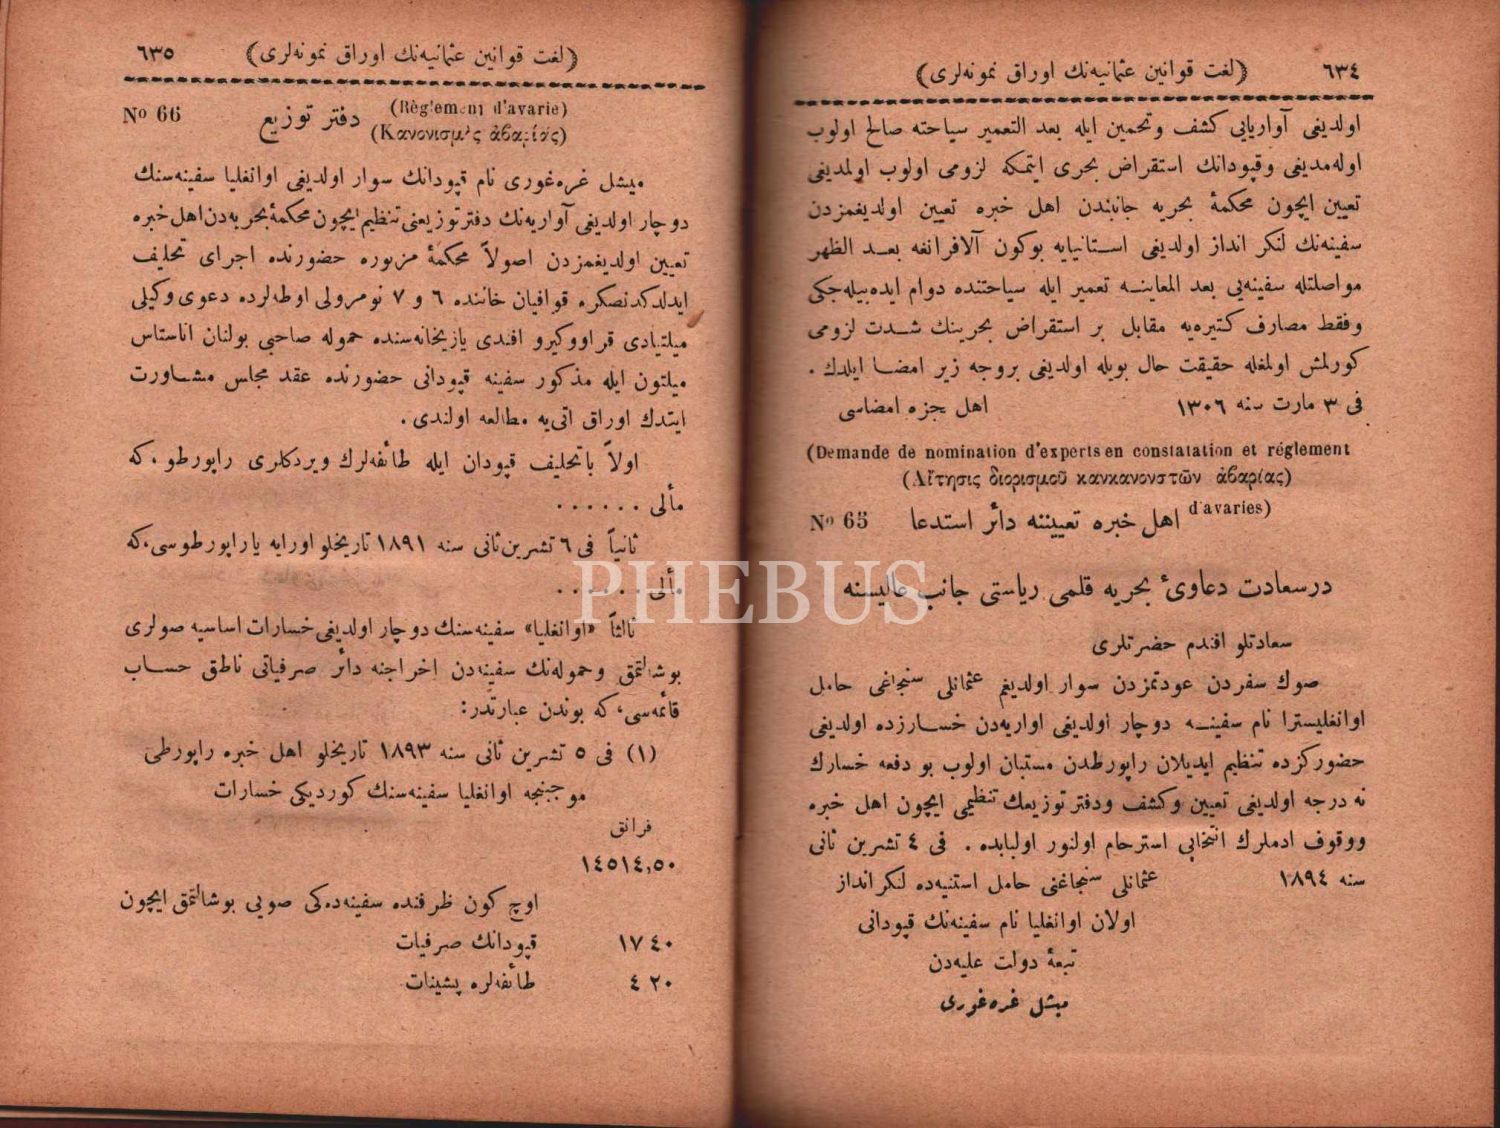 ٦٣٤ ﴿ لغت قوانین عثمانیه‌نك اوراق نمونه‌لری ﴾
اولدیغی آواریایی كشف وتخمین ایله بعد التعمیر سیاحته صالح اولوب
اوله‌مدیغی وقپودانك استقراض بحری ایتمكه لزومی اولوب اولمدیغی
تعیین ایچون محكمهٔ بحریه جانبندن اهل خبره تعیین اولدیغمزدن
سفینه‌نك لنكر انداز اولدیغی استانیایه بوكون آلافرانغه بعد الظهر
مواصلتله سفینه‌یی بعد المعاینه تعمیر ایله سیاحتنده دوام ایده‌بیله‌جكی
وفقط مصارف كثیره‌یه مقابل بر استقراض بحرینك شدت لزومی
كورلمش اولمغله حقیقت حال بویله اولدیغی بروجه زیر امضا ایلدك .
فی ٣ مارت سنه ١٣٠٦ اهل خبره امضاسی
(Demande de nomination d'experts en constatation et réglement
(Αἴτησις διορισμοῦ κανκανονστῶν ἀβαρίας)
d'avaries)
No 65 اهل خبره تعییننه دائر استدعا
درسعادت دعاوئ بحریه قلمی ریاستی جانب عالیسنه
سعادتلو افندم حضرتلری
صوك سفردن عودتمزدن سوار اولدیغم عثمانلی سنجاغی حامل
اوانغلیسترا نام سفینه دوچار اولدیغی اواریه‌دن خسارزده اولدیغی
حضوركزده تنظیم ایدیلان راپورطدن مستبان اولوب بو دفعه خسارك
نه درجه اولدیغی تعیین وكشف ودفتر توزیعك تنظیمی ایچون اهل خبره
ووقوف ادملرك انتخابی استرحام اولنور اولبابده . فی ٤ تشرین ثانی
سنه ١٨٩٤ عثمانلی سنجاغنی حامل استنیه‌ده لنكر انداز
اولان اوانغلیا نام سفینه‌نك قپودانی
تبعهٔ دولت علیه‌دن
میشل غره‌غوری
٦٣٥ ﴿ لغت قوانین عثمانیه‌نك اوراق نمونه‌لری ﴾
No 66 دفتر توزیع (Règlement d'avarie)
(Κανονισμὸς ἀβαρίας)
میشل غره‌غوری نام قپودانك سوار اولدیغی اوانغلیا سفینه‌سنك
دوچار اولدیغی آواریه‌نك دفتر توزیعنی تنظیم ایچون محكمهٔ بحریه‌دن اهل خبره
تعیین اولدیغمزدن اصولاً محكمهٔ مزبوره حضورنده اجرای تحلیف
ایدلدكدنصكره قوافیان خاننده ٦ و ٧ نومرولی اوطه‌لرده دعوی وكیلی
میلتیادی قراووكیرو افندی یازیخانه‌سنده حموله صاحبی بولنان اناستاس
میلتون ایله مذكور سفینه قپودانی حضورنده عقد مجلس مشاورت
ایتدك اوراق اتی‌یه مطالعه اولندی.
اولاً باتحلیف قپودان ایله طائفه‌لرك ویردكلری راپورطو، كه
مألی . . . . . .
ثانیاً فی ٦ تشرین ثانی سنه ١٨٩١ تاریخلو اورایه یا راپورطوسی، كه
مألی . . . . . .
ثالثاً «اوانغلیا» سفینه‌سنك دوچار اولدیغی خسارات اساسیه صولری
بوشالتمق وحموله‌نك سفینه‌دن اخراجنه دائر صرفیاتی ناطق حساب
قائمه‌سی، كه بوندن عبارتدر:
(١) فی ٥ تشرین ثانی سنه ١٨٩٣ تاریخلو اهل خبره راپورطی
موجبنجه اوانغلیا سفینه‌سنك كوردیكی خسارات
فرانق
١٤٥١٤,٥٠
اوچ كون ظرفنده سفینه‌ده‌كی صویی بوشالتمق ایچون
١٧٤٠ قپودانك صرفیات
٤٢٠ طائفه‌لره پشینات
PHEBUS